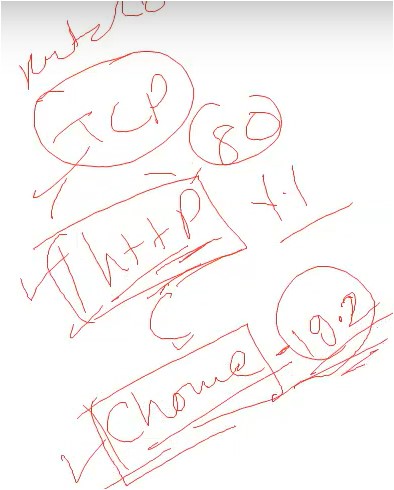 TCP 80
http 1.1
Chome 19.2